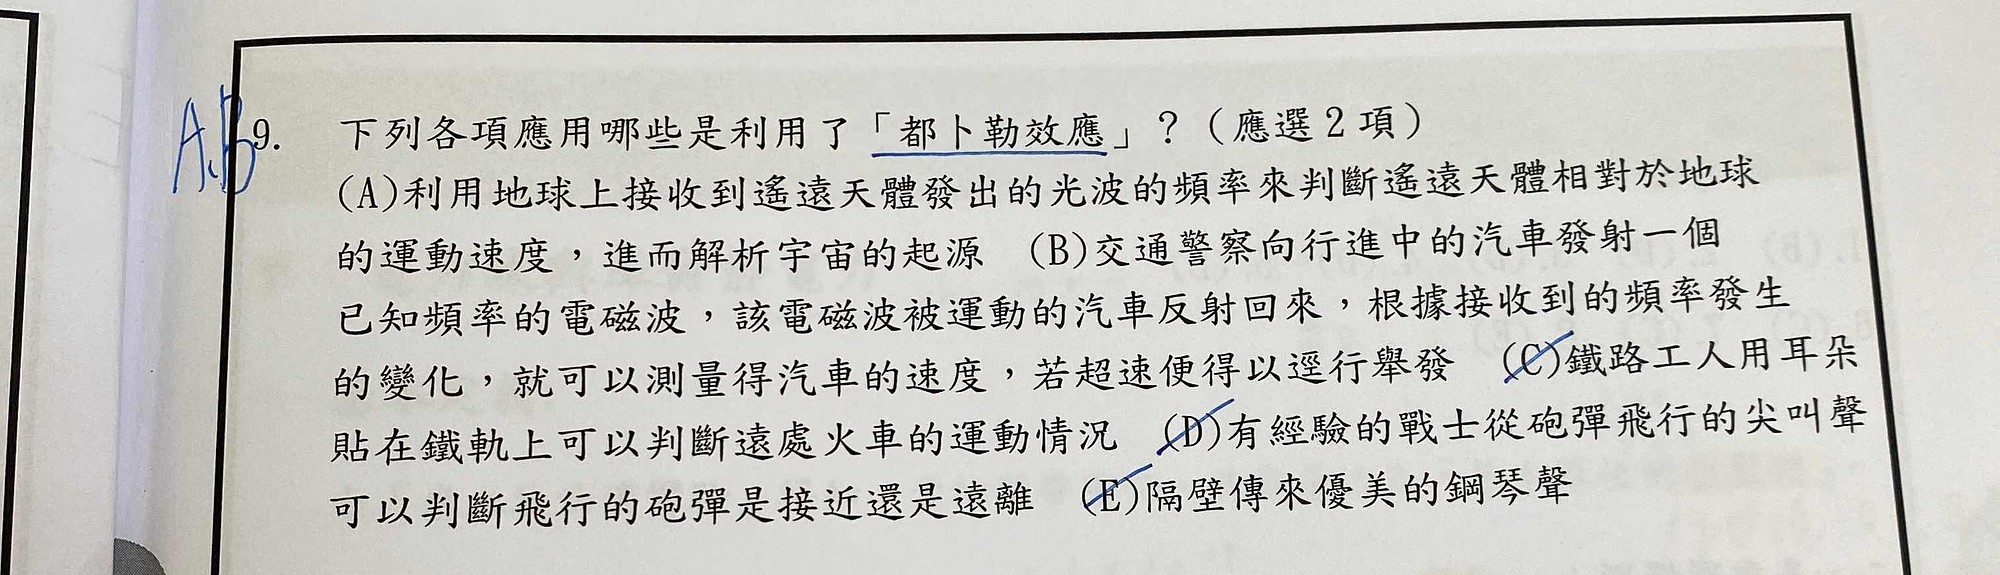 A.B
9. 下列各項應用哪些是利用了「都卜勒效應」？（應選2項）
(A)利用地球上接收到遙遠天體發出的光波的頻率來判斷遙遠天體相對於地球
的運動速度，進而解析宇宙的起源 (B)交通警察向行進中的汽車發射一個
已知頻率的電磁波，該電磁波被運動的汽車反射回來，根據接收到的頻率發生
的變化，就可以測量得汽車的速度，若超速便得以逕行舉發 (C)鐵路工人用耳朵
貼在鐵軌上可以判斷遠處火車的運動情況 (D)有經驗的戰士從砲彈飛行的尖叫聲
可以判斷飛行的砲彈是接近還是遠離 (E)隔壁傳來優美的鋼琴聲